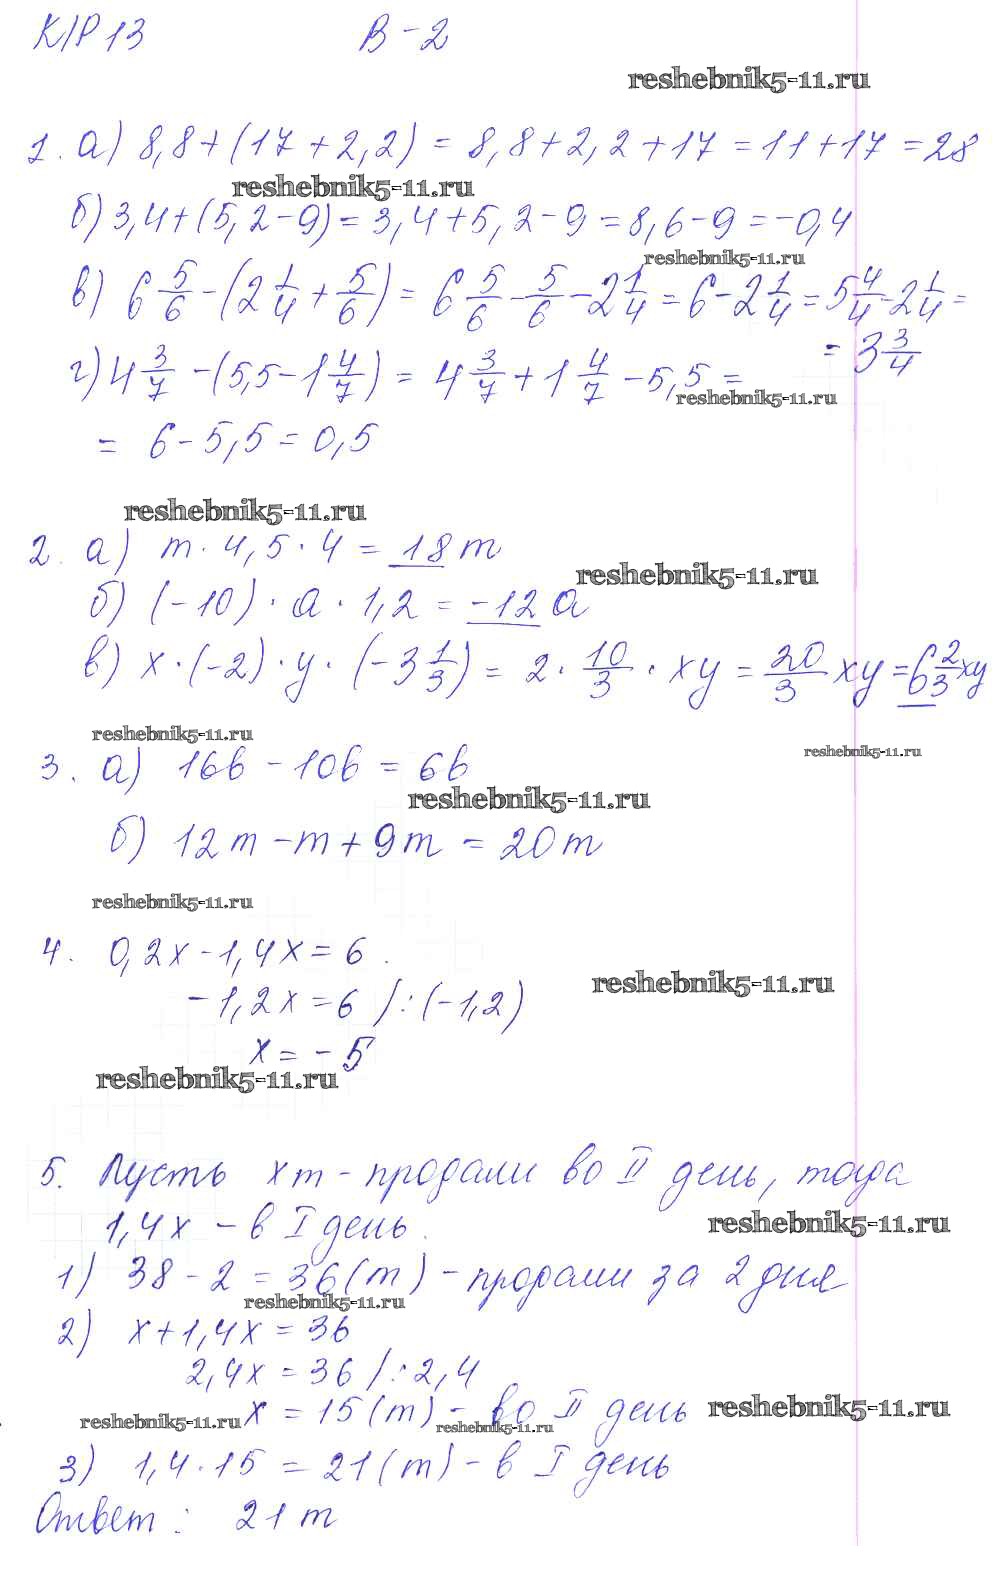 К/Р 13 В-2
reshebnik5-11.ru
1. а) 8,8+(17+2,2) = 8,8+2,2+17 = 11+17 = 28
reshebnik5-11.ru
б) 3,4+(5,2-9) = 3,4+5,2-9 = 8,6-9 = -0,4
reshebnik5-11.ru
в) 6 5/6 - (2 1/4 + 5/6) = 6 5/6 - 5/6 - 2 1/4 = 6 - 2 1/4 = 5 4/4 - 2 1/4 =
= 3 3/4
г) 4 3/7 - (5,5 - 1 4/7) = 4 3/7 + 1 4/7 - 5,5 =
reshebnik5-11.ru
= 6 - 5,5 = 0,5
reshebnik5-11.ru
2. а) m · 4,5 · 4 = 18m
reshebnik5-11.ru
б) (-10) · a · 1,2 = -12a
в) x · (-2) · y · (-3 1/3) = 2 · 10/3 · xy = 20/3 xy = 6 2/3 xy
reshebnik5-11.ru
reshebnik5-11.ru
3. а) 16b - 10b = 6b
reshebnik5-11.ru
б) 12m - m + 9m = 20m
reshebnik5-11.ru
4. 0,2x - 1,4x = 6.
reshebnik5-11.ru
-1,2x = 6 /:(-1,2)
x = -5
reshebnik5-11.ru
5. Пусть x т - продали во II день, тогда
1,4x - в I день.
reshebnik5-11.ru
1) 38 - 2 = 36 (т) - продали за 2 дня
reshebnik5-11.ru
2) x + 1,4x = 36
2,4x = 36 /:2,4
x = 15 (т) - во II день
reshebnik5-11.ru
reshebnik5-11.ru
reshebnik5-11.ru
3) 1,4 · 15 = 21 (т) - в I день
Ответ: 21 т